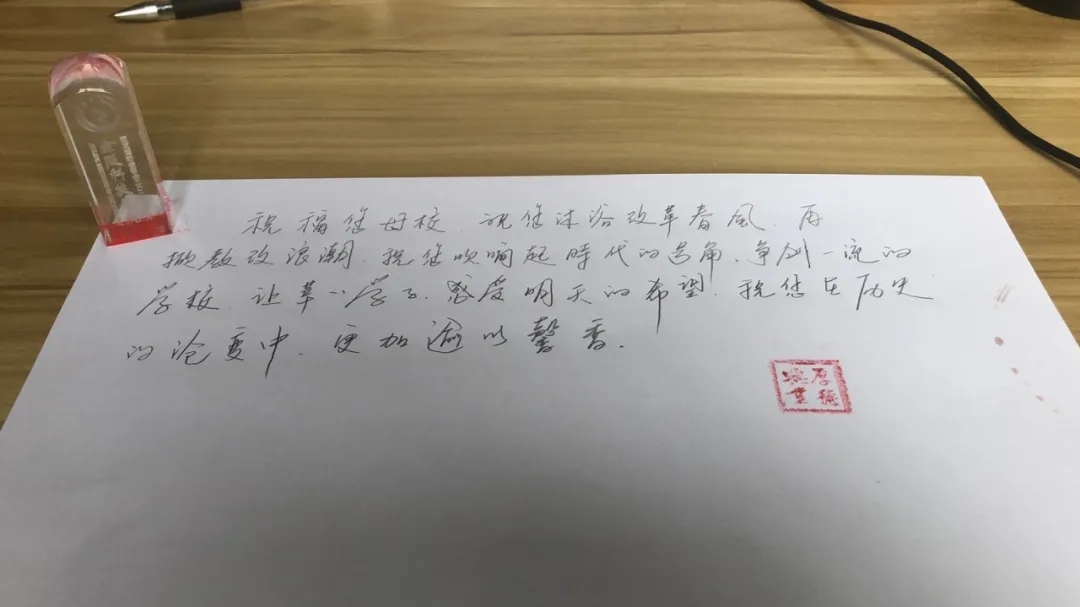 祝福您母校.祝您沐浴改革春風.再
掀教改浪潮.祝您吹响起時代的号角.争创一流的
学校.让莘莘学子.感受明天的希望.祝您在历史
的沧变中.更加逾以馨香.
厚德